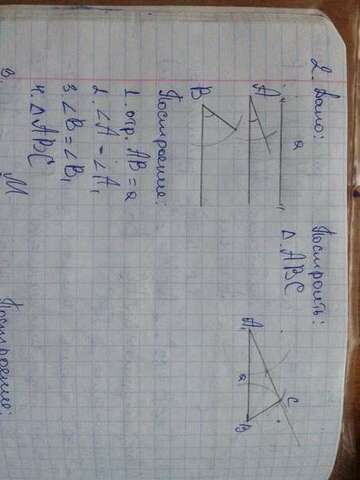 2. Дано:
a
A
B
Построить:
Δ ABC
A₁
a
B
C
Построение:
1. отр. AB = a
2. ∠A = ∠A₁
3. ∠B = ∠B₁
4. Δ ABC
3.
M
Построение: